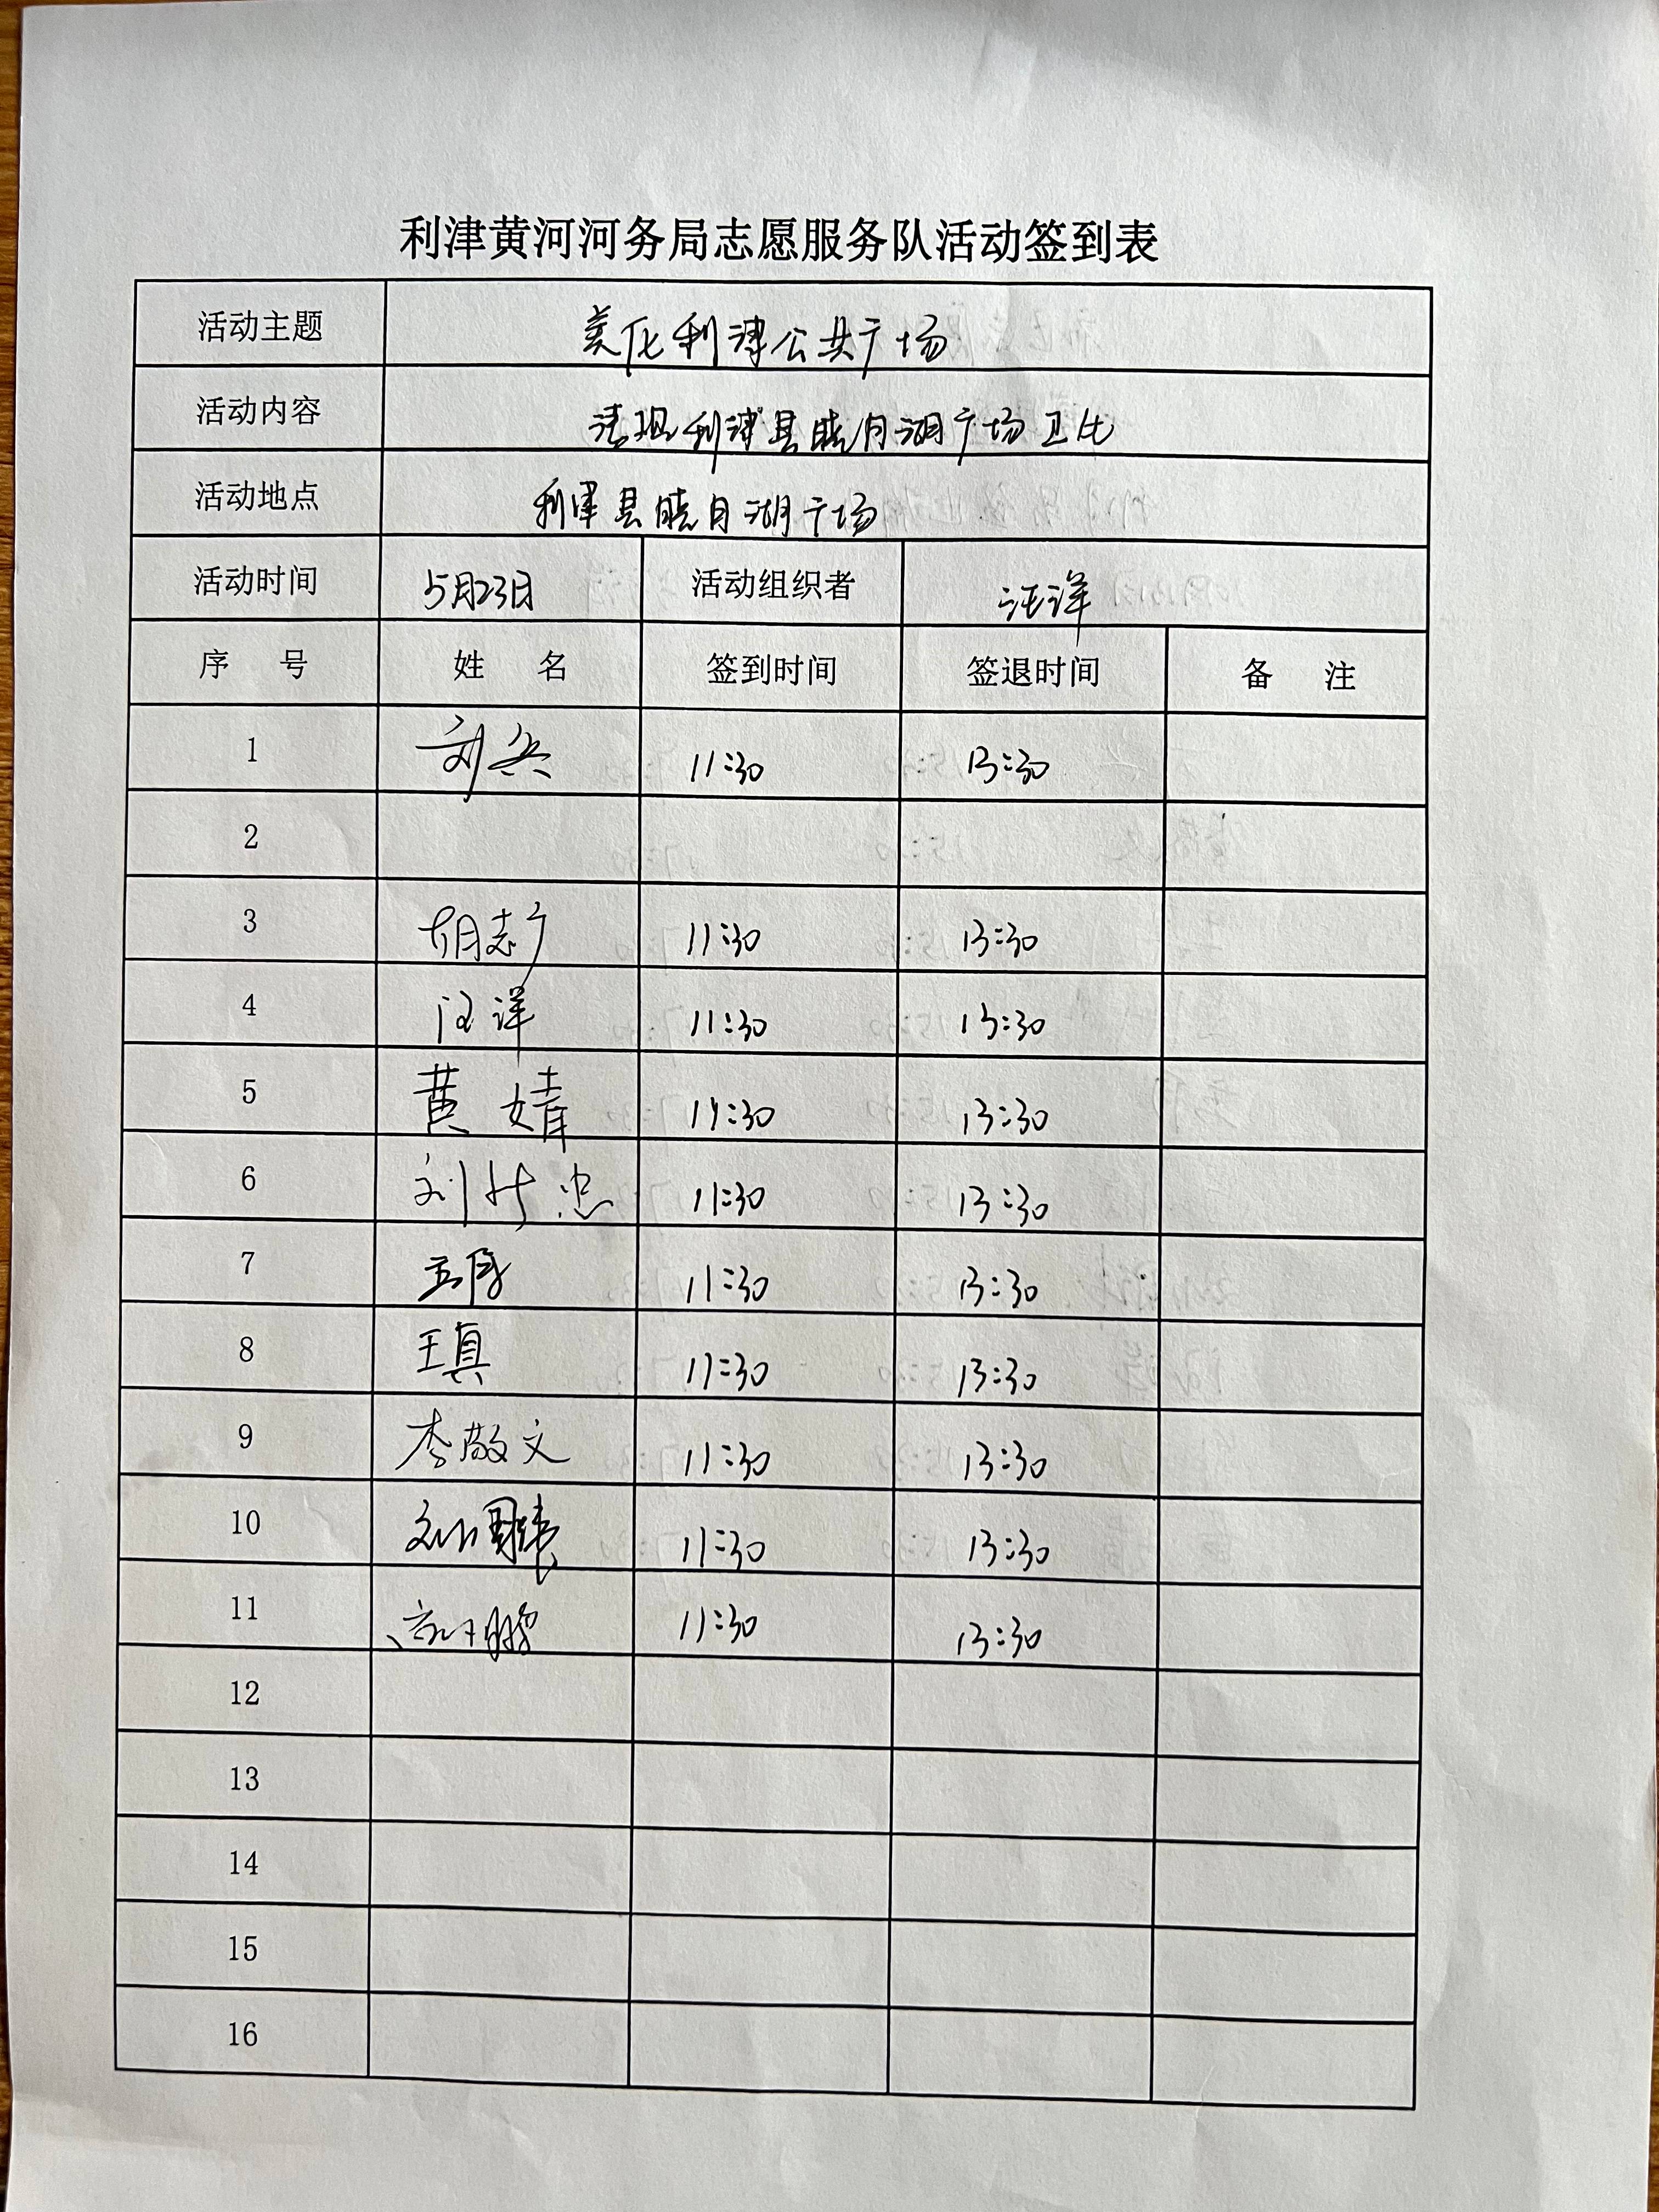 利津黄河河务局志愿服务队活动签到表
活动主题 美化利津公共广场
活动内容 清理利津县晓月湖广场卫生
活动地点 利津县晓月湖广场
活动时间 5月23日 活动组织者 汪洋
序 号 姓 名 签到时间 签退时间 备 注
1 刘兵 11:30 13:30
2
3 胡志广 11:30 13:30
4 汪洋 11:30 13:30
5 黄婧 11:30 13:30
6 刘 忠 11:30 13:30
7 11:30 13:30
8 王真 11:30 13:30
9 李敬文 11:30 13:30
10 刘 11:30 13:30
11 鹏 11:30 13:30
12
13
14
15
16